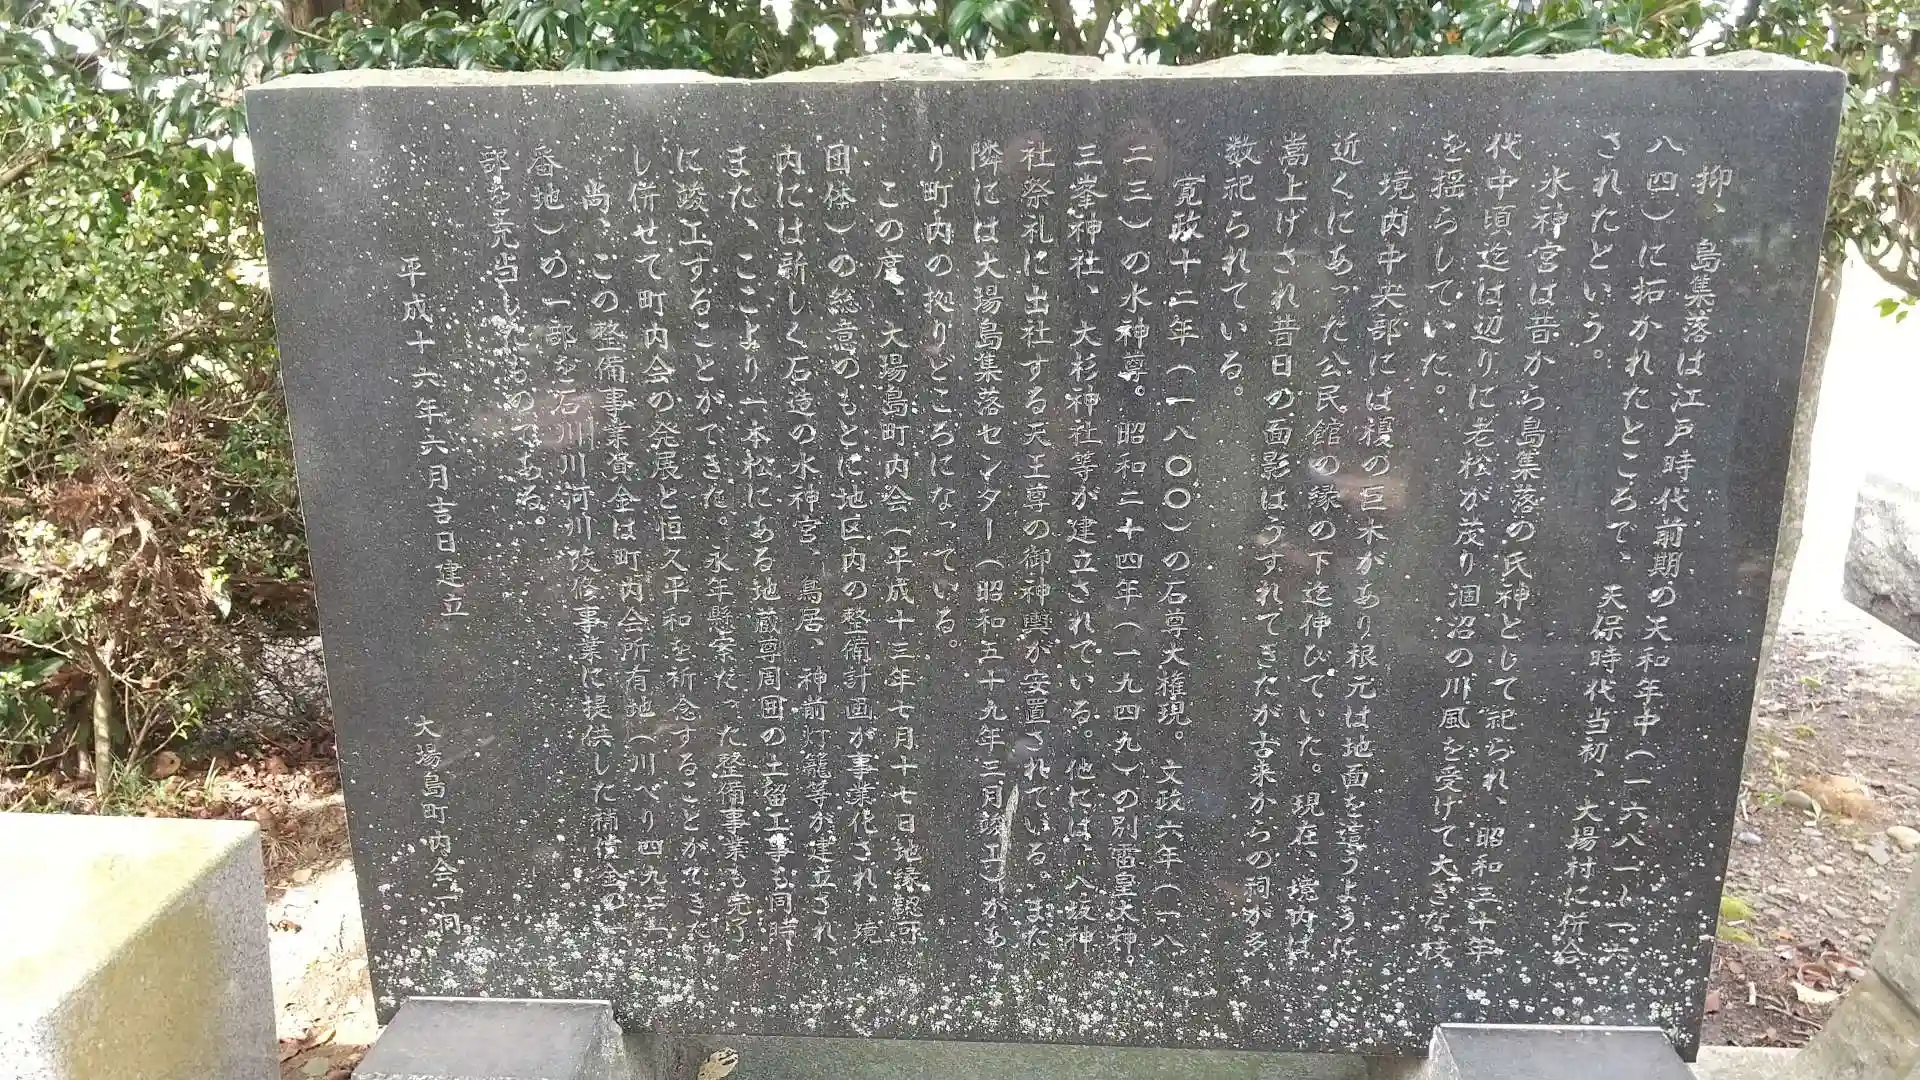 抑、島集落は江戸時代前期の天和年中(一六八一〜一六
八四)に拓かれたところで、天保時代当初、大場村に併合
されたという。
水神宮は昔から島集落の氏神として祀られ、昭和三十年
代中頃迄は辺りに老松が茂り涸沼の川風を受けて大きな枝
を揺らしていた。
境内中央部には榎の巨木があり根元は地面を這うように
近くにあった公民館の縁の下迄伸びていた。現在、境内は
嵩上げされ昔日の面影はうすれてきたが古来からの祠が多
数祀られている。
寛政十二年(一八〇〇)の石尊大権現。文政六年(一八
二三)の水神尊。昭和二十四年(一九四九)の別雷皇大神。
三峯神社、大杉神社等が建立されている。他には、八坂神
社祭礼に出社する天王尊の御神輿が安置されている。また、
隣には大場島集落センター(昭和五十九年三月竣工)があ
り町内の拠りどころになっている。
この度、大場島町内会(平成十三年七月十七日地縁認可
団体)の総意のもとに地区内の整備計画が事業化され、境
内には新しく石造の水神宮、鳥居、神前灯籠等が建立され、
また、ここより一本松にある地蔵尊周囲の土留工事も同時
に竣工することができた。永年懸案だった整備事業も完了
し併せて町内会の発展と恒久平和を祈念することができた。
尚、この整備事業資金は町内会所有地(川べり四九二一
番地)の一部を石川川河川改修事業に提供した補償金の一
部を充当したものである。
平成十六年六月吉日建立
大場島町内会一同